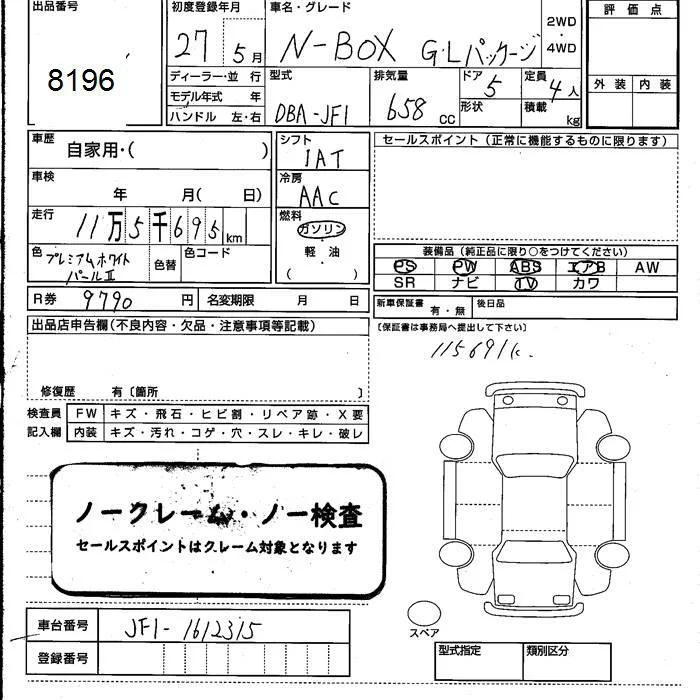 出品番号
8196
初度登録年月
27 5月
車名・グレード
N-BOX G・Lパッケージ
2WD
・
4WD
評価点
外装 内装
ディーラー・並 行
モデル年式 年
ハンドル 左・右
型式
DBA-JF1
排気量
658 cc
ドア
5
形状
定員
4人
積載
kg
車歴
自家用・( )
車検
年 月( 日)
走行
11万5千695km
色
プレミアムホワイト
パールII
色替
色コード
シフト
IAT
冷房
AAC
燃料
ガソリン
・
軽・油
・
( )
セールスポイント(正常に機能するものに限ります)
装備品(純正品に限り○をつけてください)
PS PW ABS エアB AW
SR ナビ TV カワ
R券 9790 円 名変期限 月 日
新車保証書 有・無 後日品
〔保証書は事務局へ提出して下さい〕
出品店申告欄(不良内容・欠品・注意事項等記載)
115691k.
修復歴 有〔箇所 〕
検査員 FW キズ・飛石・ヒビ割・リペア跡・X要
記入欄 内装 キズ・汚れ・コゲ・穴・スレ・キレ・破レ
ノークレーム・ノー検査
セールスポイントはクレーム対象となります
車台番号 JF1-1612315
登録番号
スペア
型式指定 類別区分